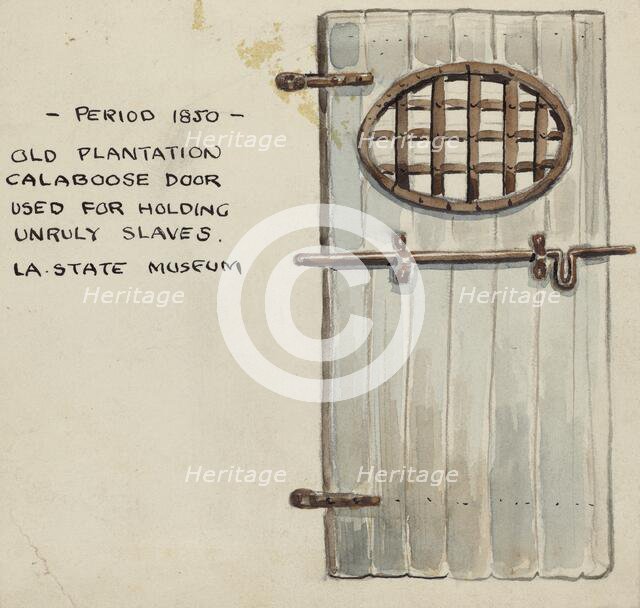 - PERIOD 1850 -
OLD PLANTATION
CALABOOSE DOOR
USED FOR HOLDING
UNRULY SLAVES.
LA. STATE MUSEUM
Heritage Heritage
Heritage Heritage Heritage
Heritage Heritage
©